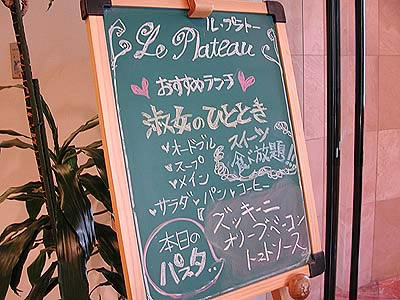 ル・プラトー
Le Plateau
おすすめランチ
淑女のひととき
オードブル
スープ
メイン
サラダ パン コーヒー
スイーツ
食べ放題!!
本日の
パスタ
ズッキーニ
オリーブ、ベーコン
トマトソース